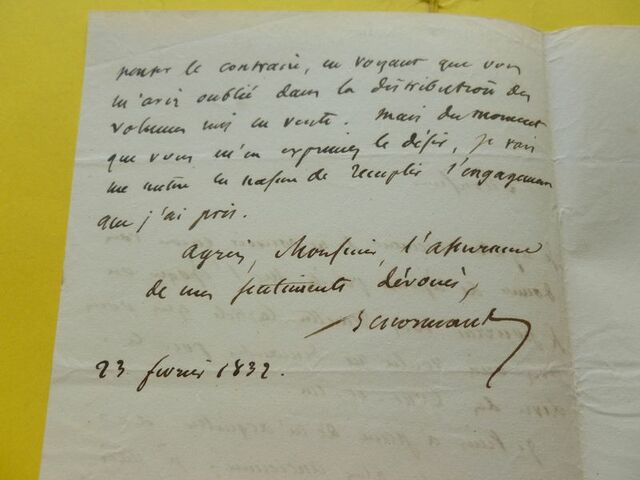 penser le contraire, en voyant que vous
m'aviez oublié dans la distribution des
volumes mis en vente. mais du moment
que vous m'en exprimez le désir, je vais
me mettre en mesure de remplir l'engagement
que j'ai pris.
agréez, Monsieur, l'assurance
de mes sentiments dévoués,
Lenormant
23 février 1832.